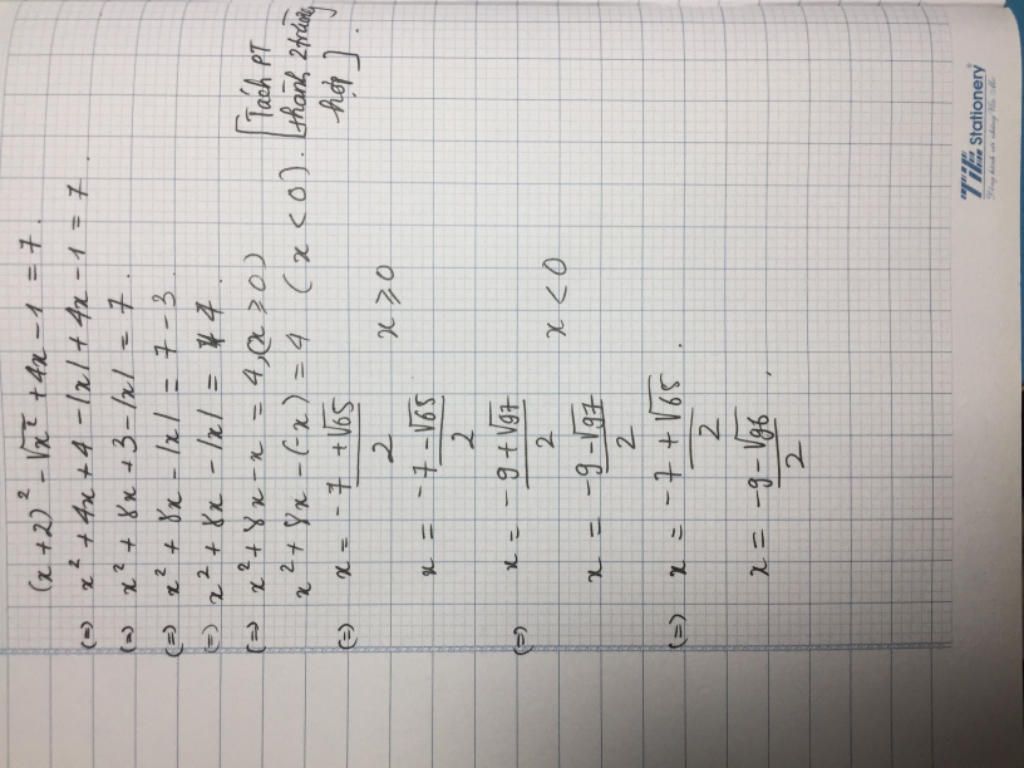 (x+2)² - √x² + 4x - 1 = 7.
(=) x² + 4x + 4 - |x| + 4x - 1 = 7.
(=) x² + 8x + 3 - |x| = 7.
(=) x² + 8x - |x| = 7 - 3
(=) x² + 8x - |x| = 4.
(=) x² + 8x - x = 4, (x ≥ 0)
x² + 8x - (-x) = 4 (x < 0). [Tách PT
thành 2 trường
hợp].
(=) x = (-7 + √65)/2 x ≥ 0
x = (-7 - √65)/2
(=) x = (-9 + √97)/2 x < 0
x = (-9 - √97)/2
(=) x = (-7 + √65)/2.
x = (-9 - √96)/2.
Stationery